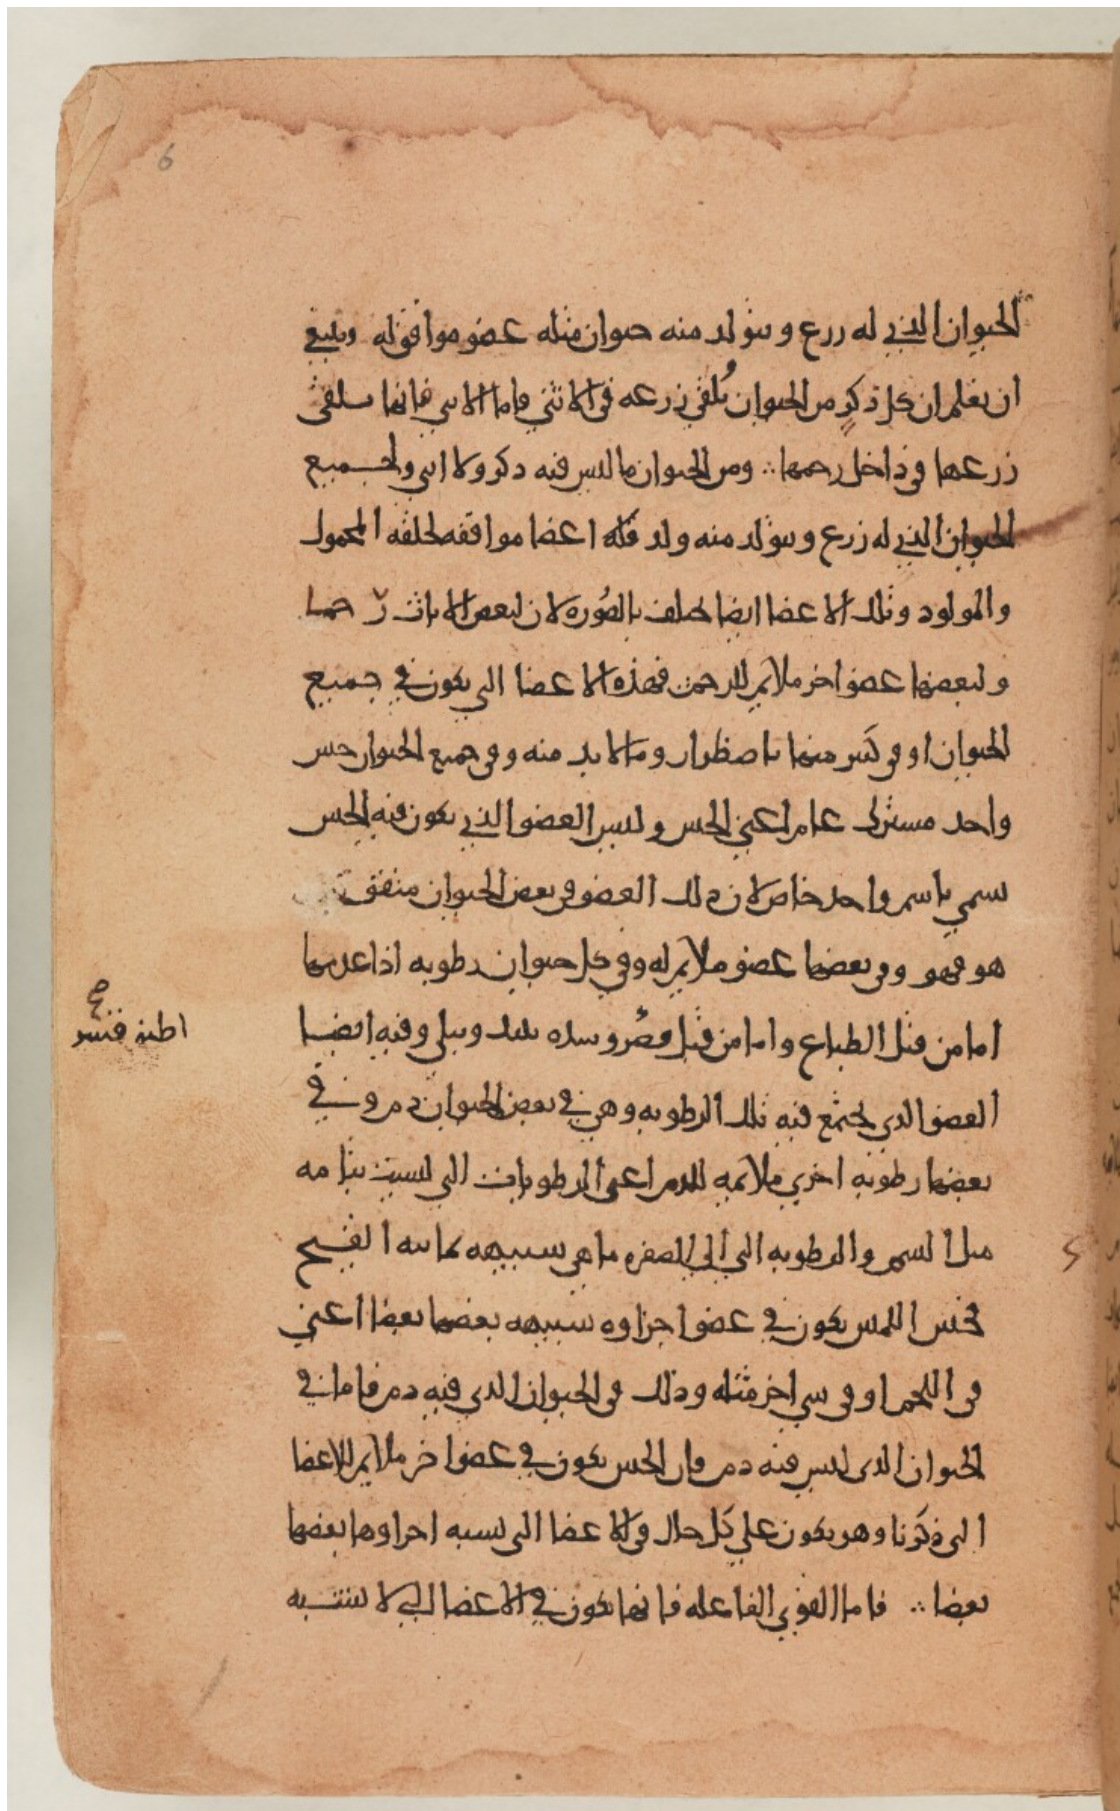 6
الحيوان الذي له زرع ويتولد منه حيوان مثله عضو موافق له وينبغي
ان نعلم ان كل ذكر من الحيوان يُلقي زرعه في الانثي فاما الانثي فانها تلقي
زرعها في داخل رحمها ∴ ومن الحيوان ما ليس فيه ذكر ولا انثي ولجميع
الحيوان الذي له زرع ويتولد منه ولد فله اعضا موافقه لخلقه المحمول
والمولود وتلك الاعضا ايضا تختلف بالصُوره لان لبعض الاناث رحما
ولبعضها عضو اخر ملايم للرحم فهذه الاعضا التي تكون في جميع
الحيوان او في كثير منها باضطرار وما لا بد منه وفي جميع الحيوان حس
واحد مشترك عام اعني الحس وليس العضو الذي يكون فيه الحس
يسمي باسم واحد خاص لان ذلك العضو في بعض الحيوان متفق
هو فهو وفي بعضها عضو ملايم له وفي كل حيوان رطوبه اذا عدمها
اما من قبل الطباع واما من قبل وسده ويبلي وفيه ايضا
اطنه
العضو الذي تجتمع فيه تلك الرطوبه وهي في بعض الحيوان دم وفي
بعضها رطوبه اخري ملائمه للدم اعني الرطوبات التي ليست بتامه
مثل السم والرطوبه التي الي الصفره ما هي شبيهه بمائيه القيح
فحس اللمس يكون في عضو اجزاوه شبيهه بعضها بعضا اعني
في اللحم او في شي اخر مثله وذلك في الحيوان الذي فيه دم فاما في
الحيوان الذي ليس فيه دم فان الحس يكون في عضو اخر ملايم للاعضا
التي ذكرنا وهو يكون علي كل حال في الاعضا التي تشبه اجزاوها بعضها
بعضا ∴ فاما القوي الفاعله فانها تكون في الاعضا التي لا تشتبه